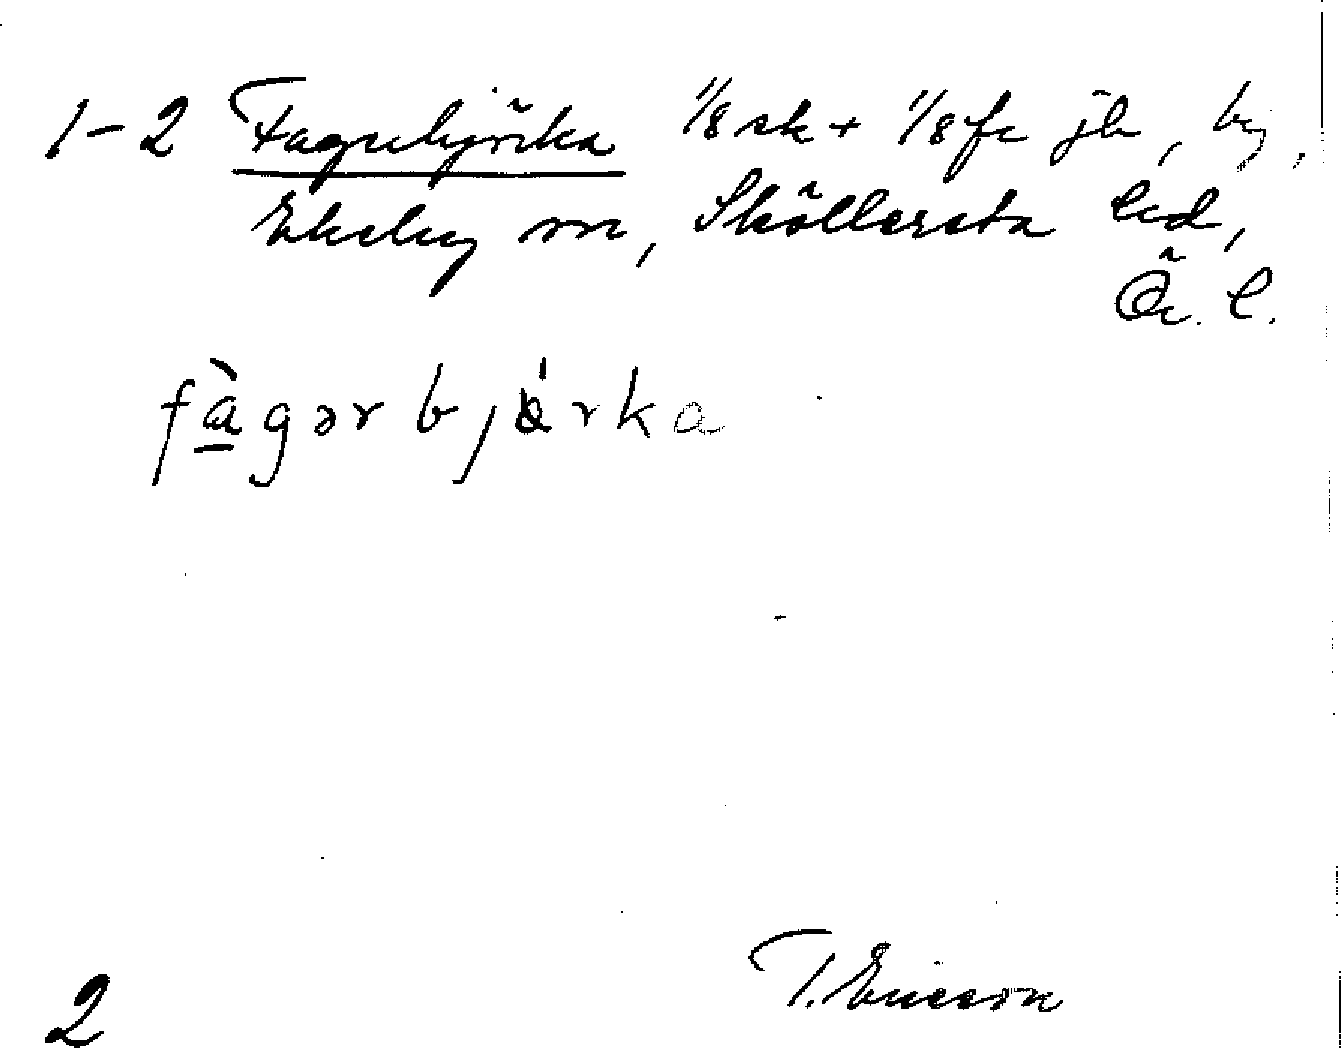 1-2 Fagerbjörka 1/8 sk + 1/8 fr jb, by,
Ekeby sn, Sköllersta hd,
Ör. l.
fàgər bjö́rka
T. Ericsson
2